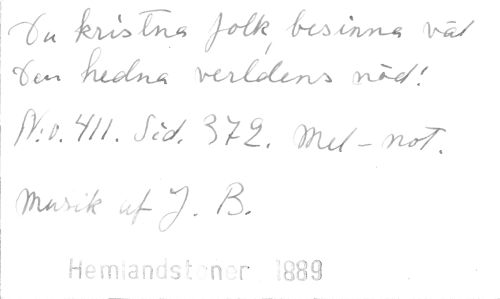 Du kristna folk, besinna väl
Den hedna verldens nöd!
N:o. 411. Sid. 372. Mel-not.
Musik af J. B.
Hemlandstoner 1889